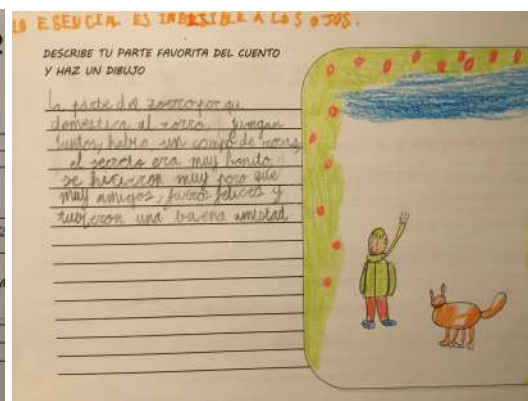 LO ESENCIAL ES INBISIBLE A LOS OJOS.
DESCRIBE TU PARTE FAVORITA DEL CUENTO
Y HAZ UN DIBUJO
la parte del zorro por qu
domestica al zorro, juegan
juntos, habia un campo de rosas
el secreto era muy bonito,
se hicieron muy poro que
muy amigos, fueros felices y
tubieron una buena amistad